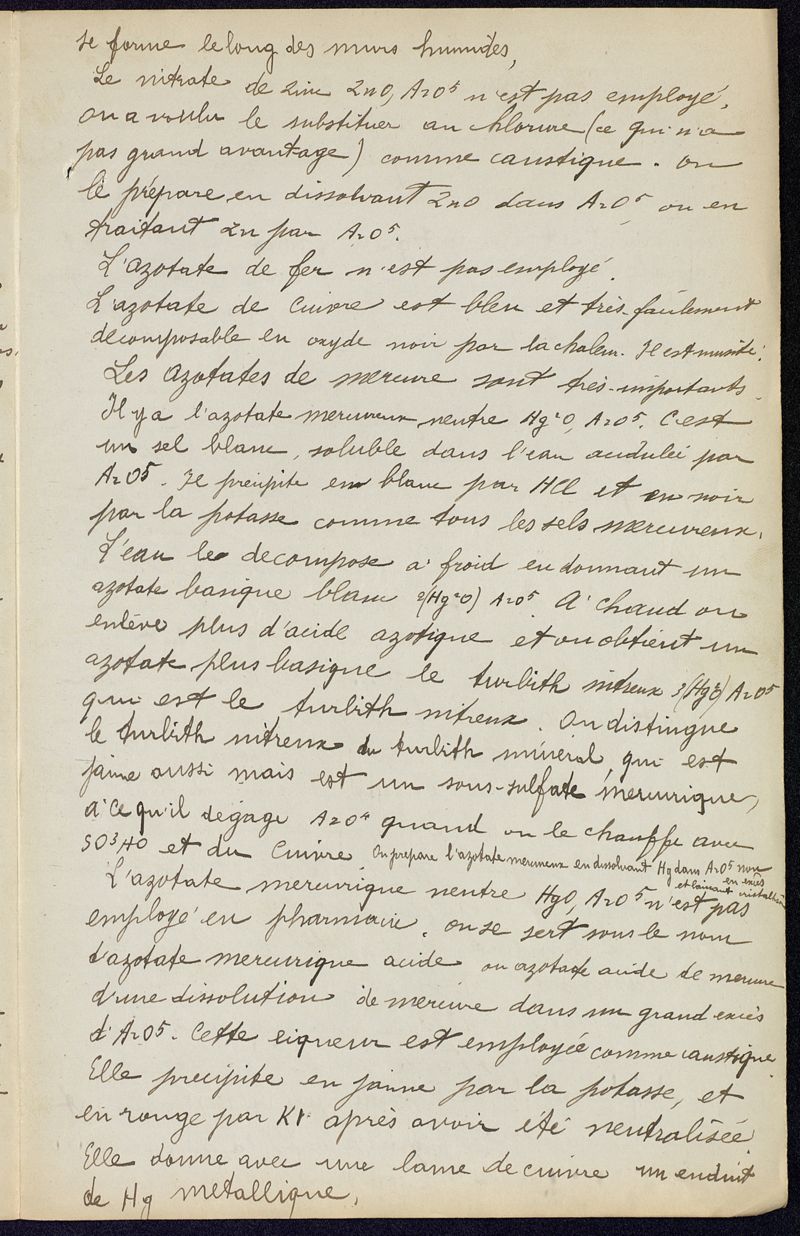 se forme le long des murs humides,
Le nitrate de zinc ZnO, AzO⁵ n'est pas employé,
on a voulu le substituer au chlorure (ce qui n'a
pas grand avantage) comme caustique. on
le prépare en dissolvant ZnO dans AzO⁵ ou en
traitant Zn par AzO⁵.
L'azotate de fer n'est pas employé.
L'azotate de cuivre est bleu et très-facilement
décomposable en oxyde noir par la chaleur. Il est inusité.
Les azotates de mercure sont très-importants.
Il y a l'azotate mercureux neutre Hg²O, AzO⁵. C'est
un sel blanc, soluble dans l'eau acidulée par
AzO⁵. Il précipite en blanc par HCl et en noir
par la potasse comme tous les sels mercureux.
L'eau le décompose à froid en donnant un
azotate basique blanc 2(Hg²O) AzO⁵ A chaud on
enlève plus d'acide azotique et on obtient un
azotate plus basique le turbith nitreux 3(Hg²O) AzO⁵
qui est le turbith nitreux. On distingue
le turbith nitreux du turbith minéral, qui est
jaune aussi mais est un sous-sulfate mercurique,
à ce qu'il dégage AzO⁴ quand on le chauffe avec
SO³HO et du cuivre On prepare l'azotate mercureux en dissolvant Hg dans AzO⁵ non
en excès
et laissant cristalliser
L'azotate mercurique neutre HgO, AzO⁵ n'est pas
employé en pharmacie. on se sert sous le nom
d'azotate mercurique acide ou azotate acide de mercure
d'une dissolution de mercure dans un grand excès
d'AzO⁵. Cette liqueur est employée comme caustique.
Elle precipite en jaune par la potasse, et
en rouge par KI après avoir été neutralisée.
Elle donne avec une lame de cuivre un enduit
de Hg métallique.